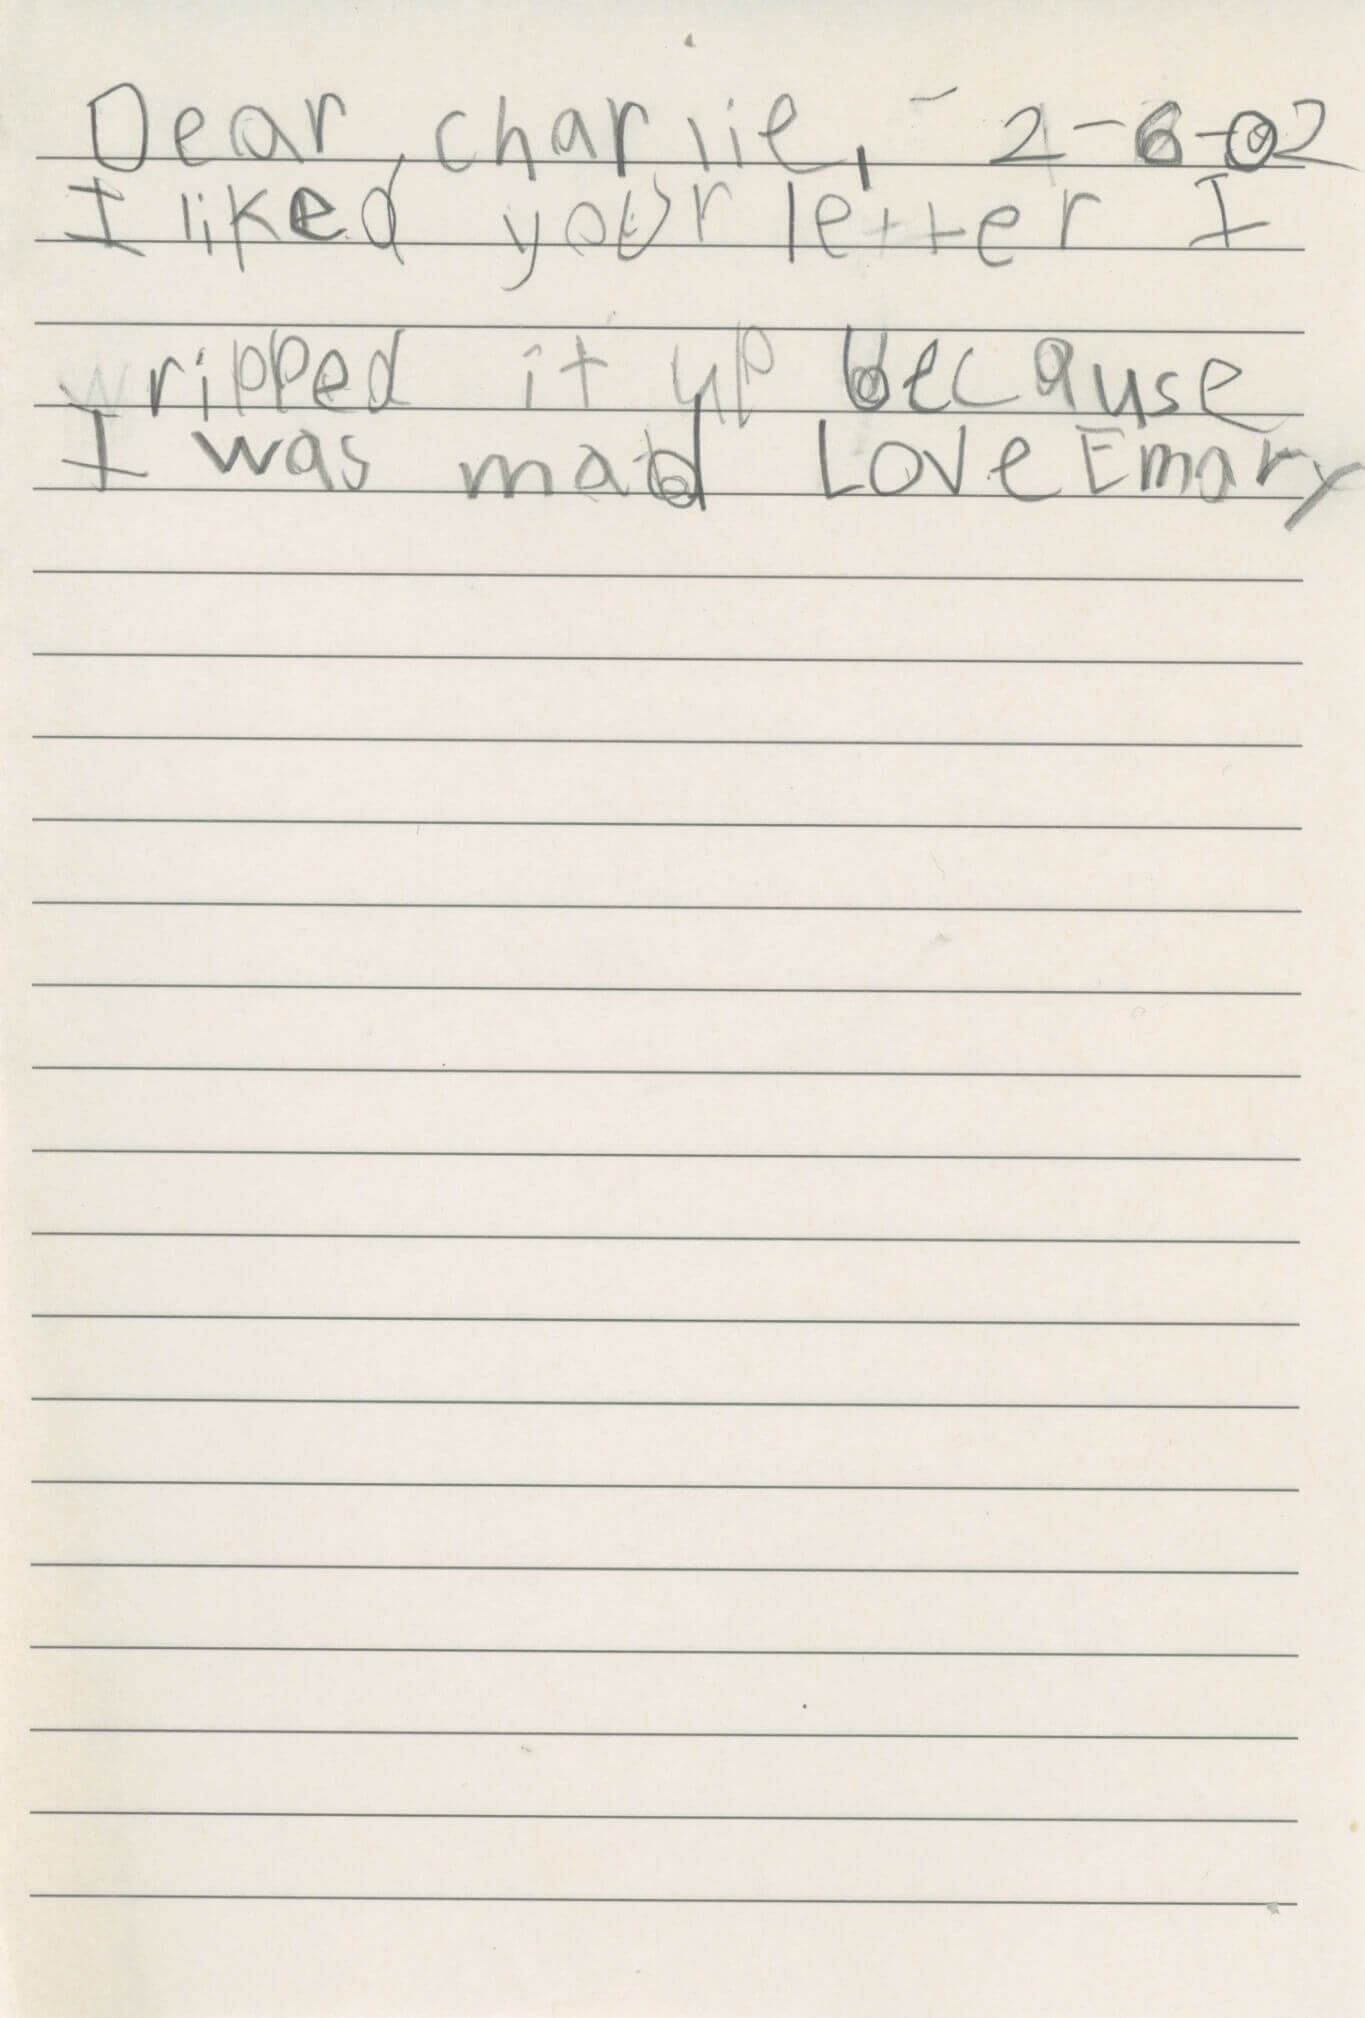 Dear, charlie, - 2-6-02
I liked your letter I
wripped it up because
I was mad Love Emary